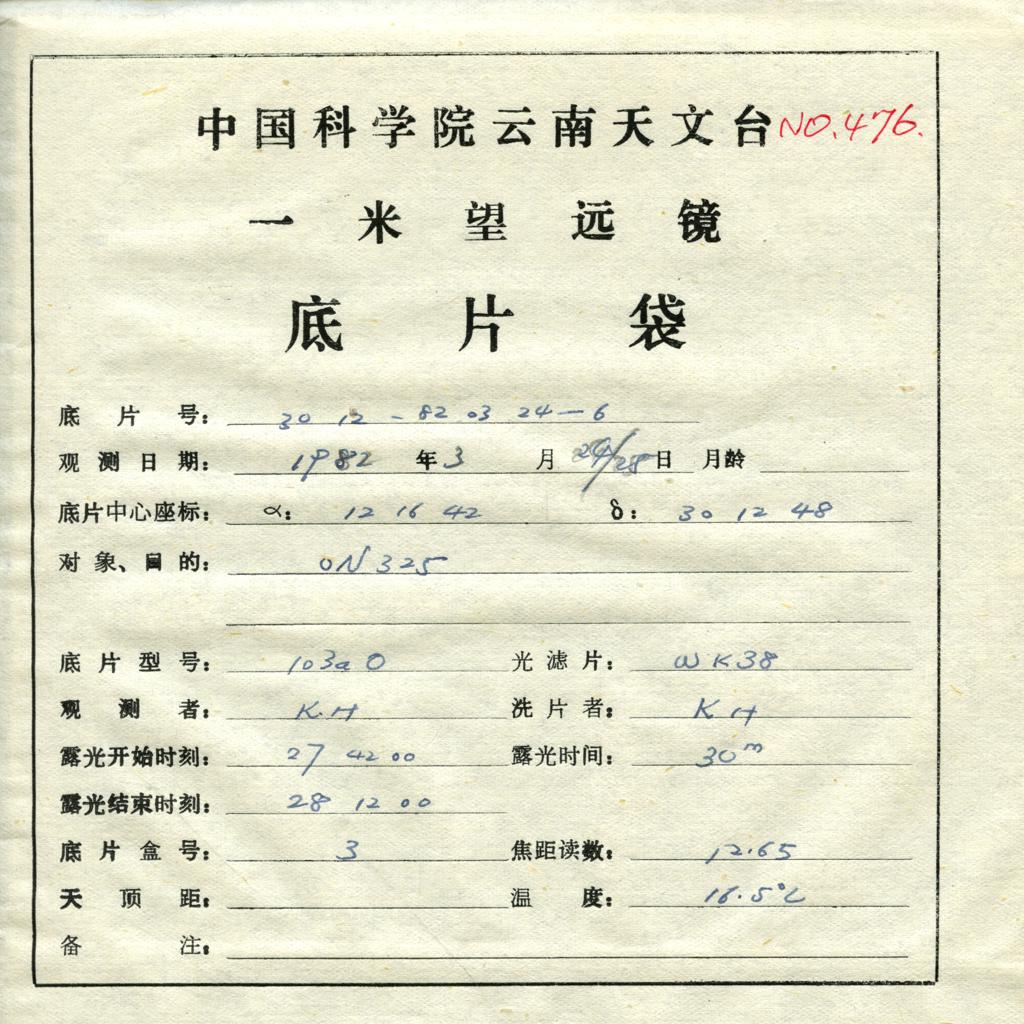 中国科学院云南天文台 NO.476.
一米望远镜
底片袋
底片号: 30 12 - 82 03 24 - 6
观测日期: 1982 年 3 月 24/25 日 月龄
底片中心座标: α: 12 16 42 δ: 30 12 48
对象、目的: ON 325
底片型号: 103a O 光滤片: WK38
观测者: K.H 洗片者: K H
露光开始时刻: 27 42 00 露光时间: 30m
露光结束时刻: 28 12 00
底片盒号: 3 焦距读数: 12.65
天顶距: 温度: 16.5°C
备注: